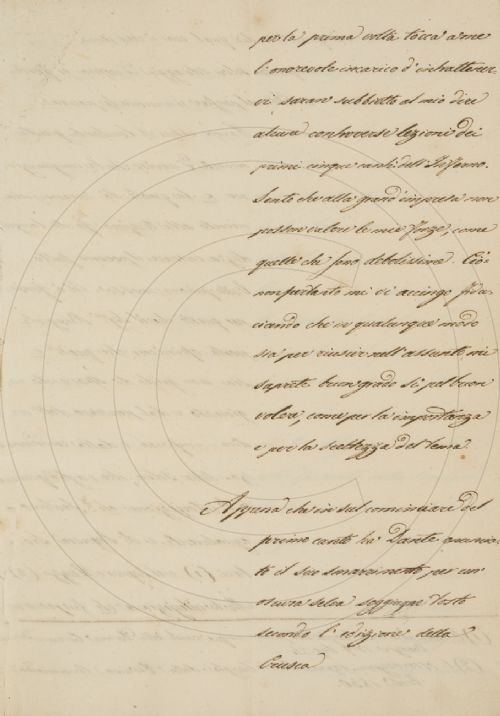 per la prima volta tocca a me
l'onorevole incarico d'intrattener
vi saran subbietto al mio dire
alcune controverse lezioni dei
primi cinque canti dell'Inferno.
Sento che alla grand'impresa non
posson valere le mie forze, come
quelle che sono debolissime. Ciò
non pertanto mi vi accingo fidu-
ciando che in qualunque modo
sia per riuscir nell'assunto mi
saprete buon grado sì pel buon
volere, come per la importanza
e per la sceltezza del tema.
Appena che in sul cominciare del
primo canto ha Dante annuncia-
to il suo smarrimento per un'
oscura selva soggiugne tosto
secondo l'edizione della
Crusca